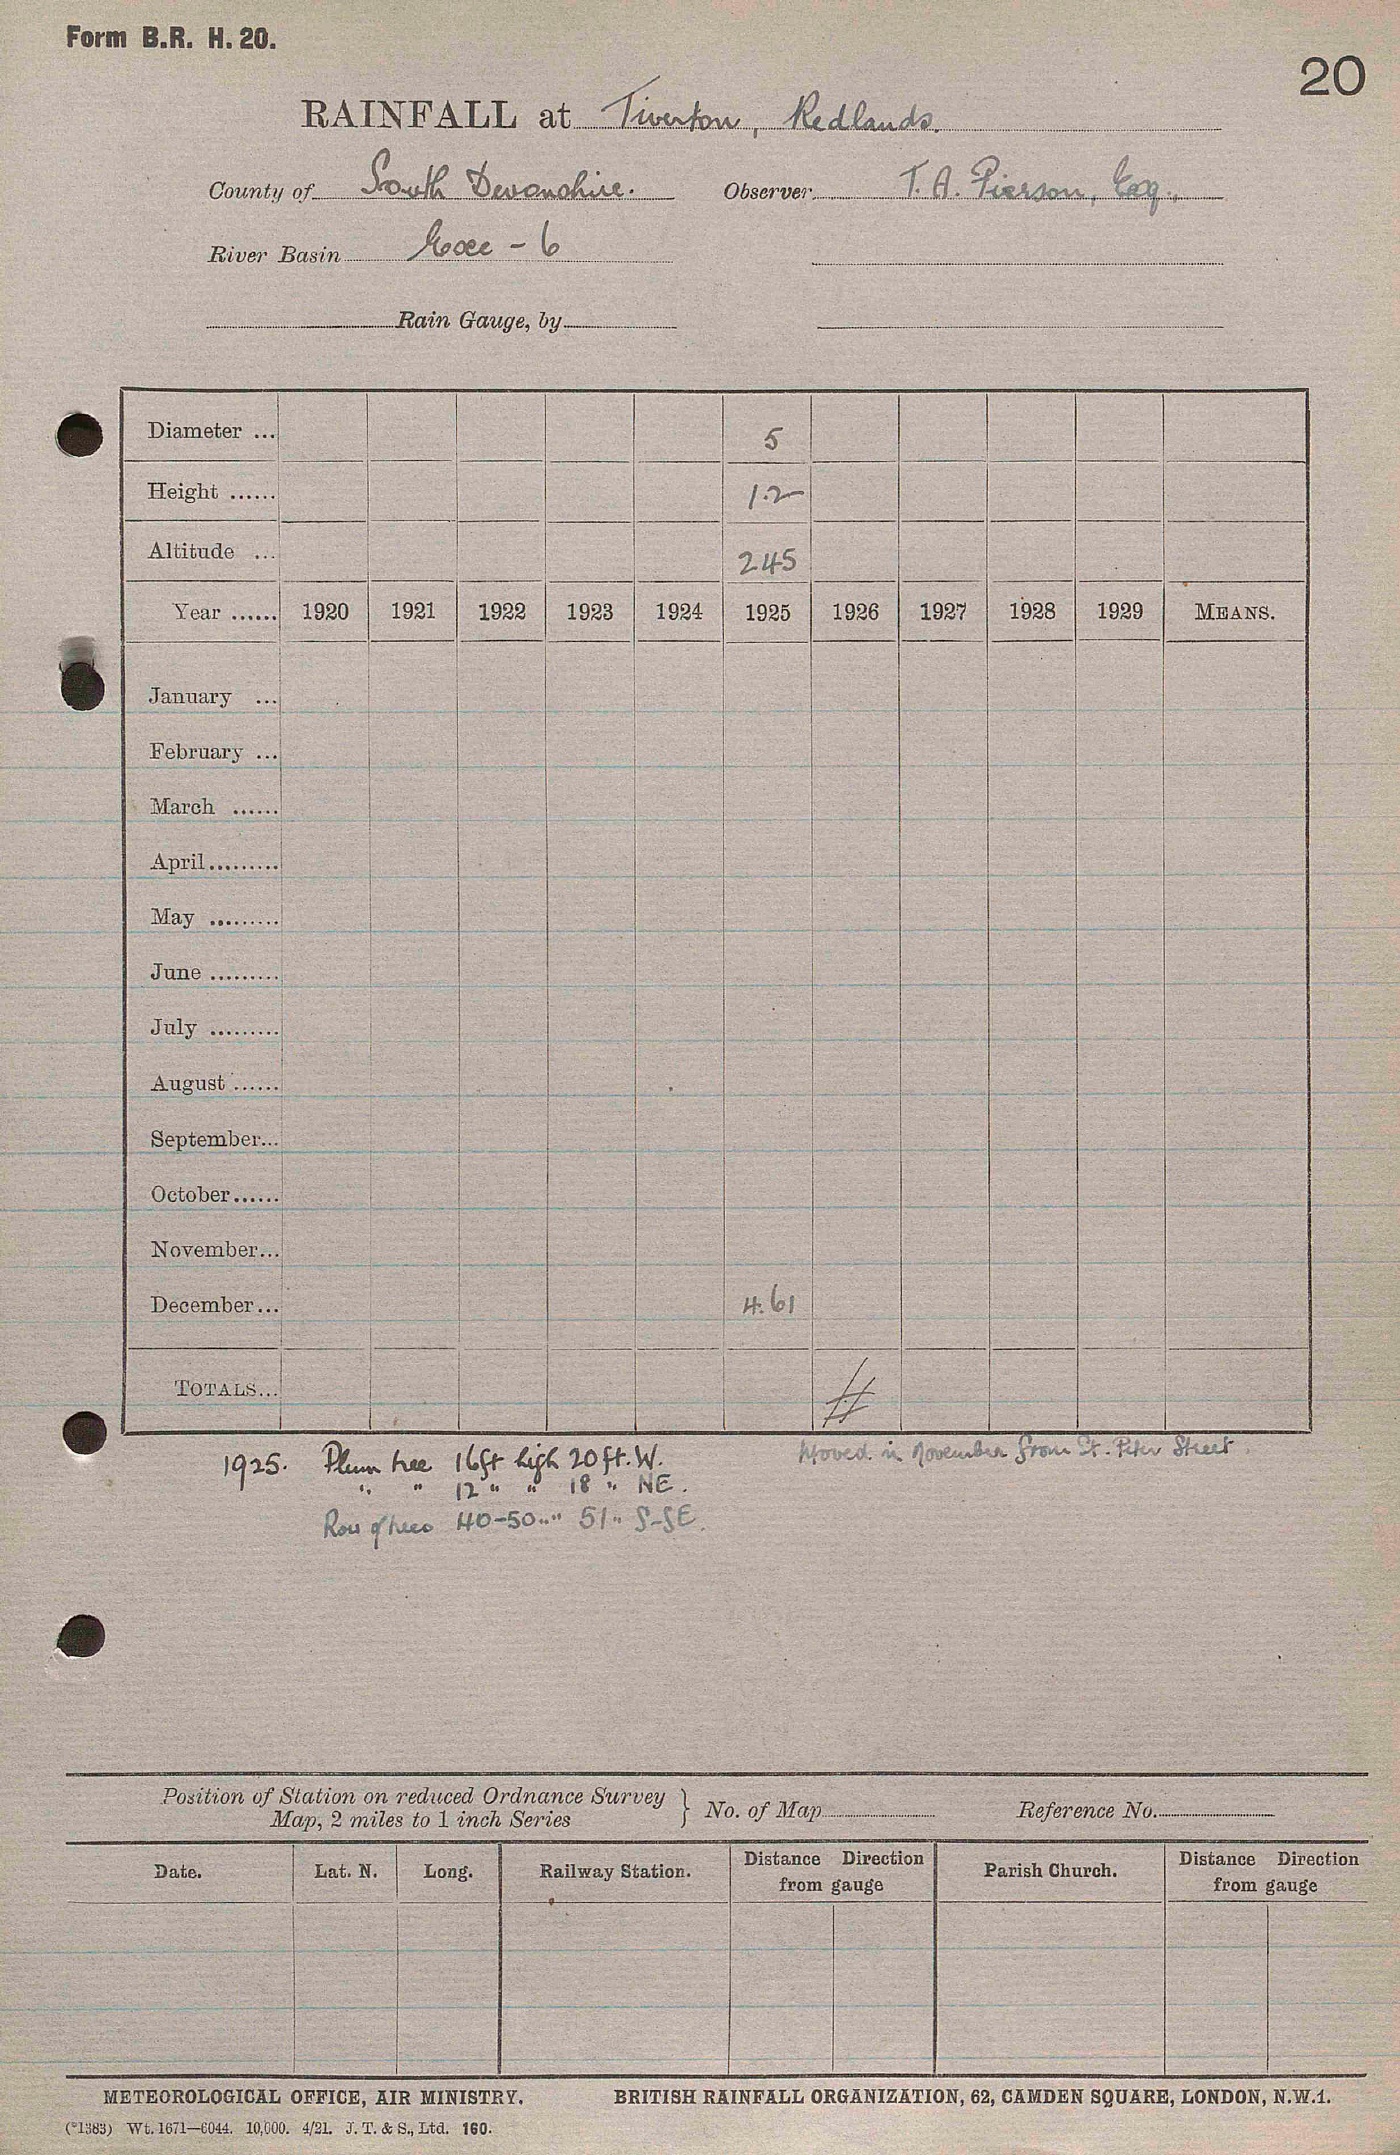 Form B.R. H. 20.
20
RAINFALL at Tiverton, Redlands.
County of South Devonshire. Observer T. A. Pierson, Esq.,
River Basin Exe - 6
Rain Gauge, by
Diameter ... 5
Height ...... 1.2
Altitude ... 245
Year ...... 1920 1921 1922 1923 1924 1925 1926 1927 1928 1929 MEANS.
January ...
February ...
March ......
April.........
May .........
June .........
July .........
August ......
September...
October......
November...
December... 4.61
TOTALS... #
1925. Plum tree 16ft high 20ft. W. Moved in November from St. Peter Street.
" " 12 " " 18 " NE.
Row of trees 40-50 " " 51 " S-SE.
Position of Station on reduced Ordnance Survey
Map, 2 miles to 1 inch Series } No. of Map Reference No.
Date. Lat. N. Long. Railway Station. Distance Direction from gauge Parish Church. Distance Direction from gauge
METEOROLOGICAL OFFICE, AIR MINISTRY. BRITISH RAINFALL ORGANIZATION, 62, CAMDEN SQUARE, LONDON, N.W.1.
(*1383) Wt. 1671—6044. 10,000. 4/21. J. T. & S., Ltd. 160.